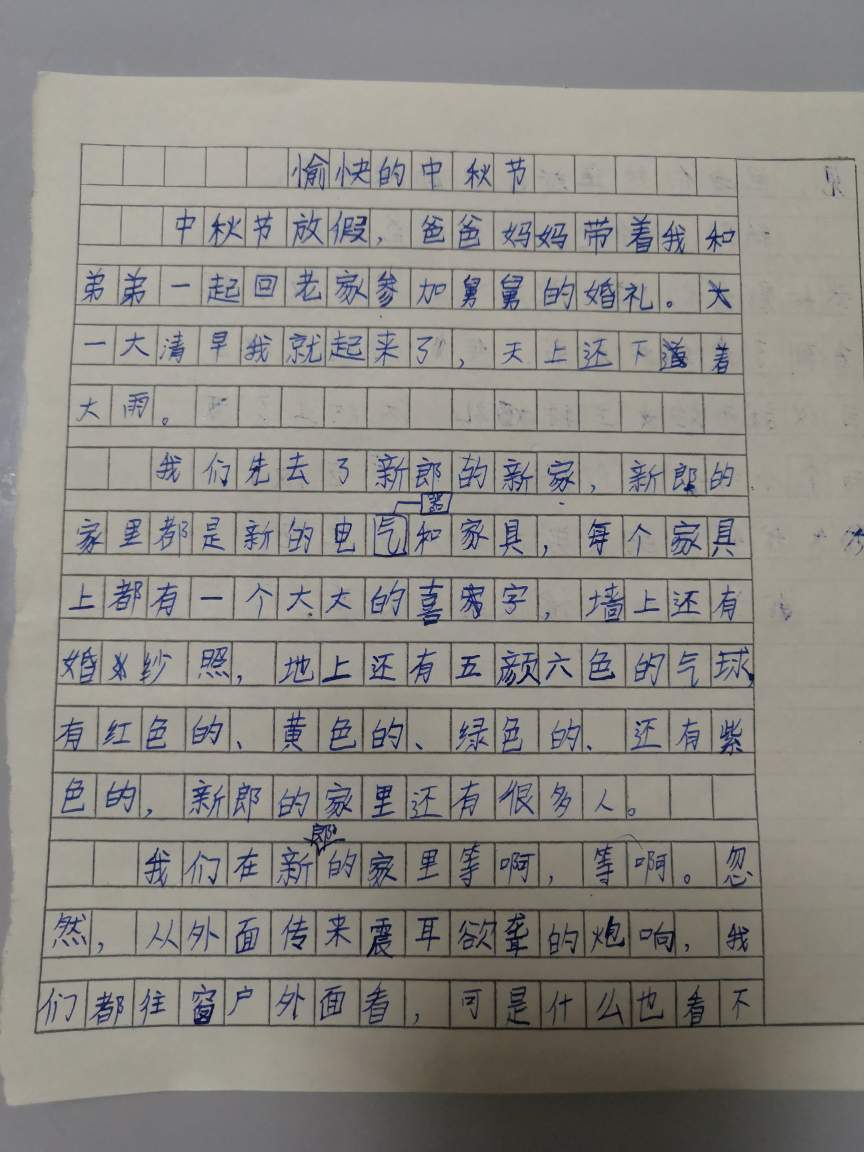 愉快的中秋节
中秋节放假，爸爸妈妈带着我和
弟弟一起回老家参加舅舅的婚礼。
一大清早我就起来了，天上还下着
大雨。
我们先去了新郎的新家，新郎的
家里都是新的电器和家具，每个家具
上都有一个大大的喜字，墙上还有
婚纱照，地上还有五颜六色的气球，
有红色的、黄色的、绿色的、还有紫
色的，新郎的家里还有很多人。
我们在新郎的家里等啊，等啊。忽
然，从外面传来震耳欲聋的炮响，我
们都往窗户外面看，可是什么也看不